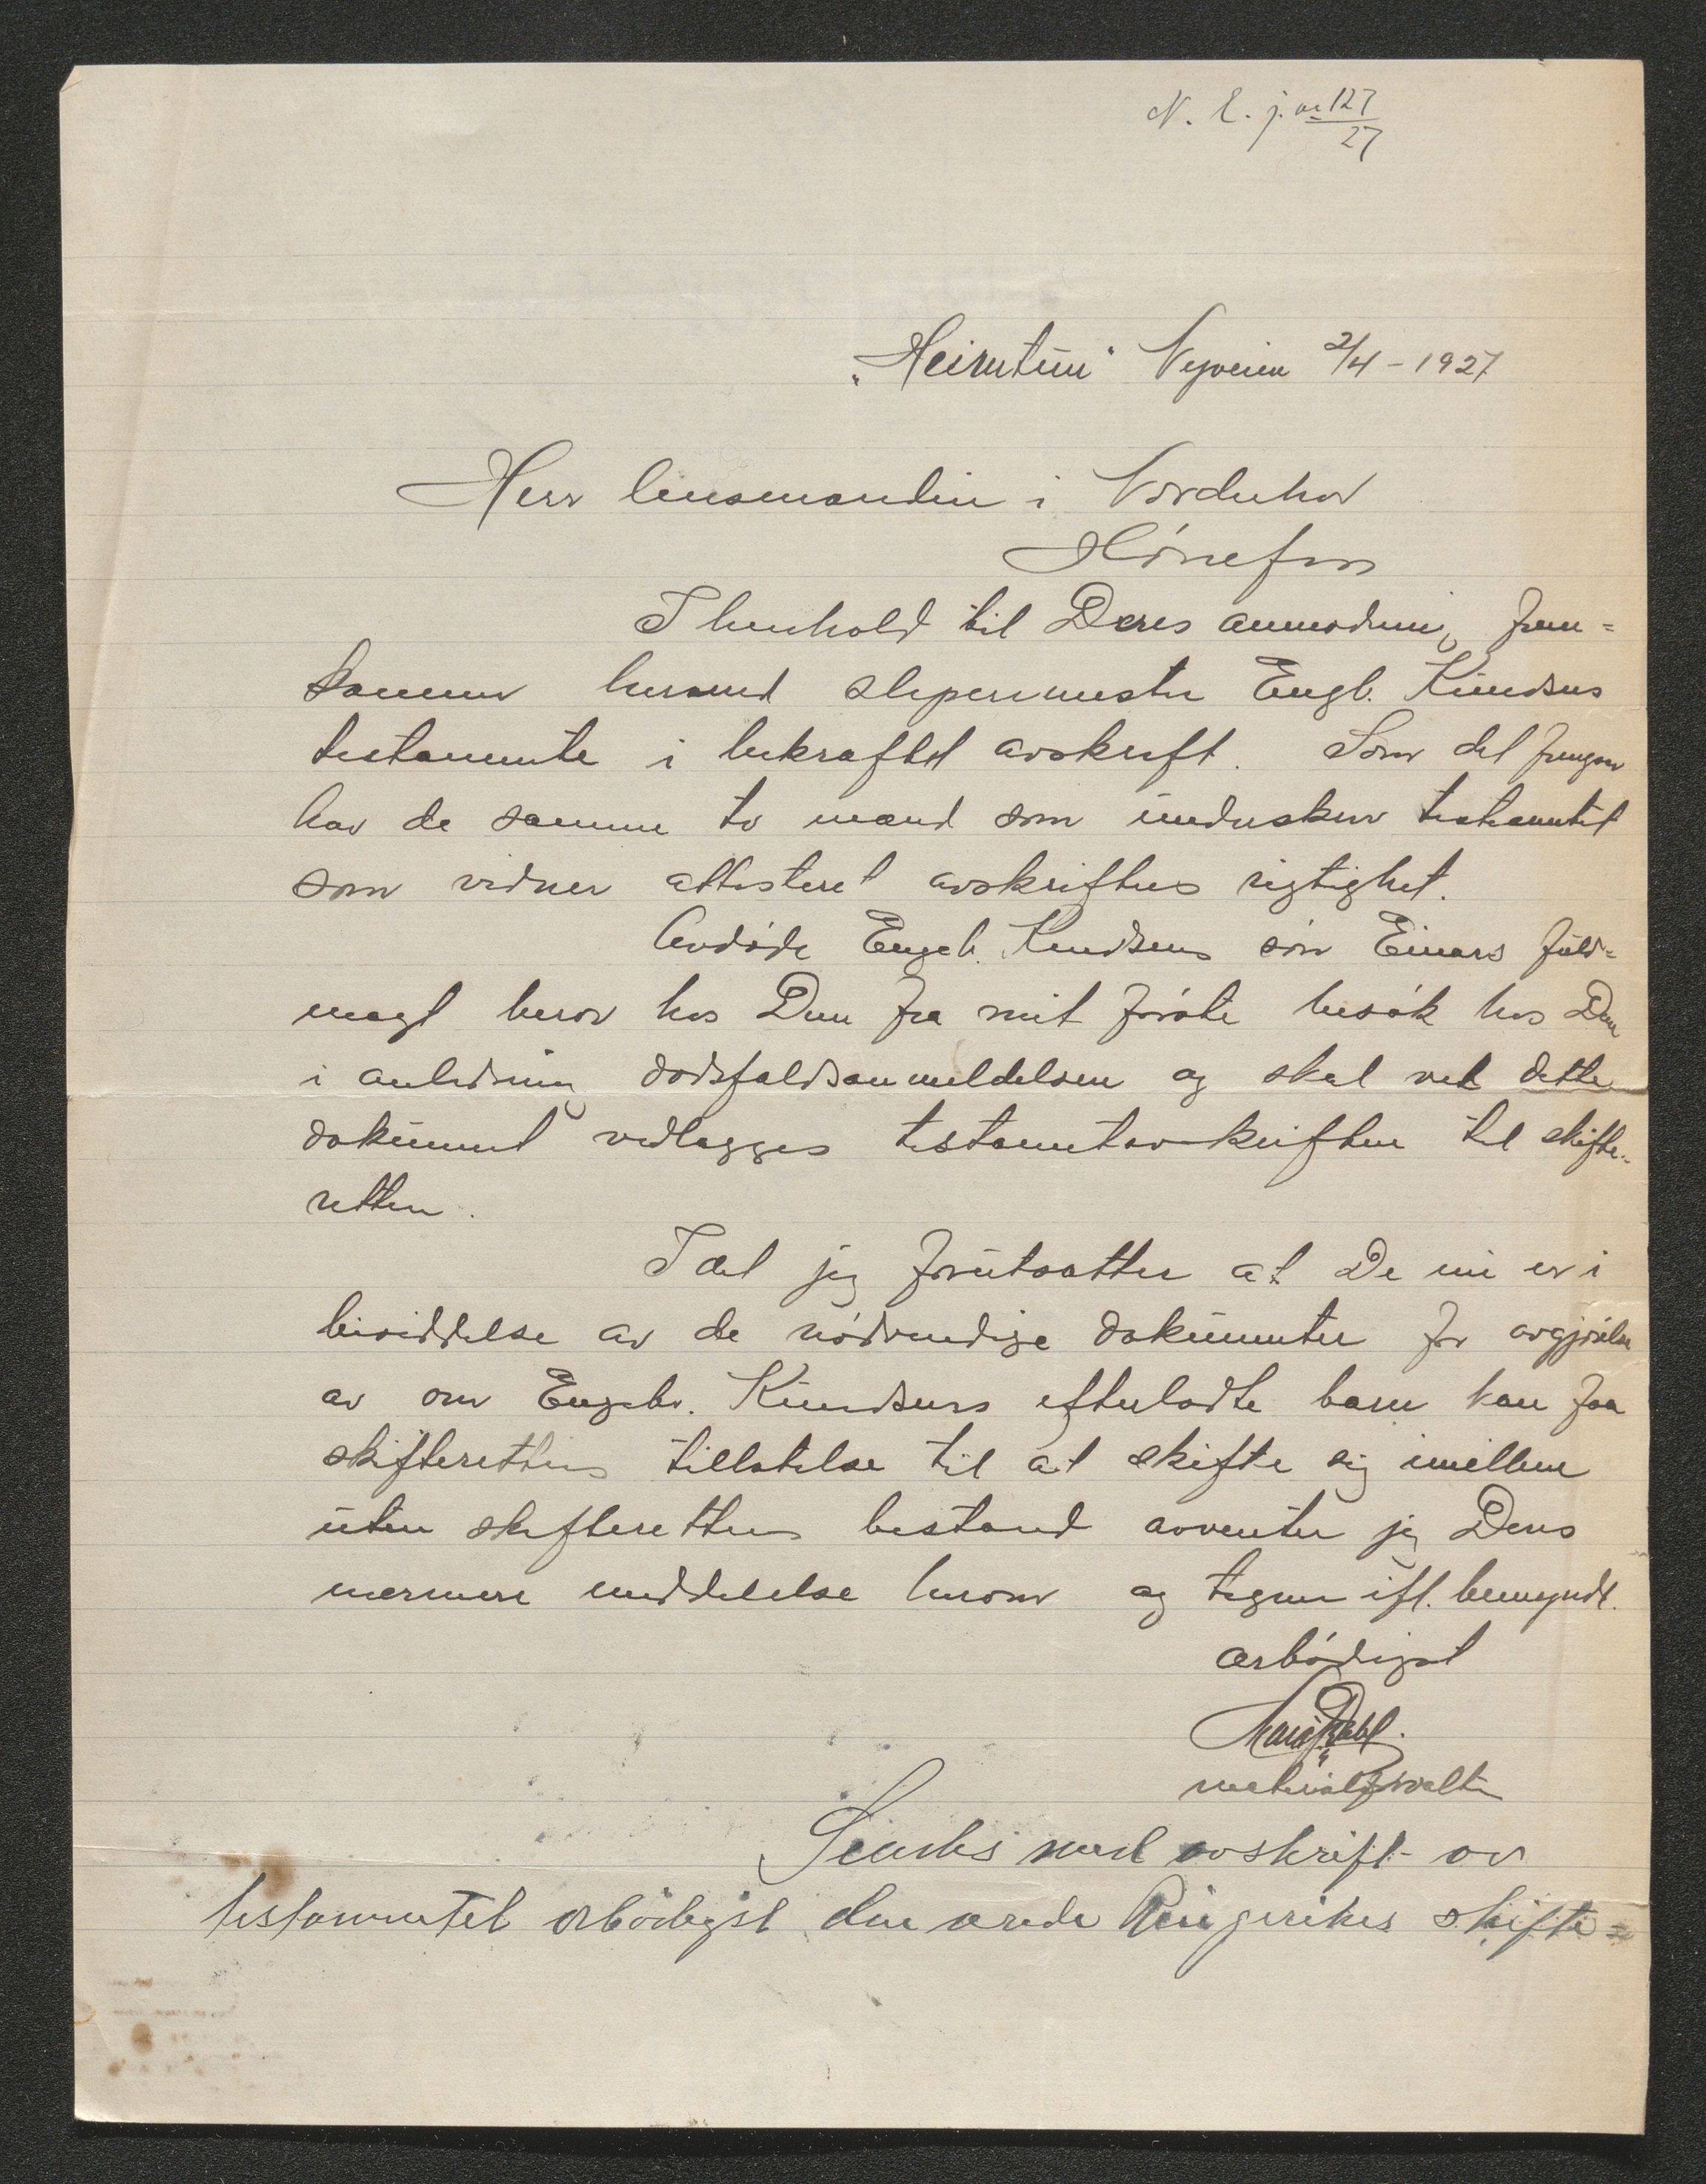 N. L. j. nr 127/27
"Heimtun" Nyveien 2/4 - 1927
Herr lensmanden i Norderhov
Hönefoss
I henhold til Deres anmodning frem=
kommer herved slipermester Engb. Knudsens
testamente i bekræftet avskrift. Som det fremgaar
har de samme to mænd som underskrev testamentet
som vidner attesteret avskriftens rigtighet.
Avdöde Engeb. Knudsens sön Einars fuld=
magt beror hos Dem fra mit förste besök hos Dem
i anledning dödsfaldsanmeldelsen og skal vel dette
dokument vedlægges testamentavskriften til skifte=
retten.
I det jeg forutsætter at De nu er i
besiddelse av de nödvendige dokumenter for avgjörelse
av om Engebr. Knudsens efterladte barn kan faa
skifterettens tillatelse til at skifte sig imellem
uten skifterettens bestand avventer jeg Deres
nærmere meddelelse herom og tegner ifl. bemyndt.
ærbödigst
materialforvalter
Sendes med avskrift av
testamentet ærbödigst den ærede Ringerikes skifte=